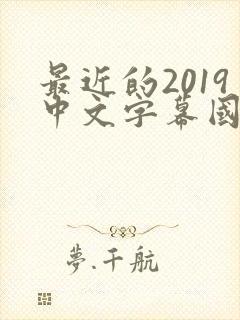 最近的2019
中文字幕國
夢.千航